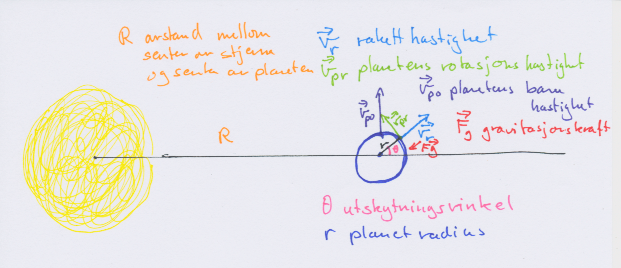 R avstand mellom
senter av stjerne
og senter av planeten
v⃗r rakett hastighet
v⃗pr planetens rotasjonshastighet
v⃗po planetens bane
hastighet
F⃗g gravitasjonskraft
v⃗po
v⃗pr
v⃗r
F⃗g
R
r
θ
θ utskytningsvinkel
r planet radius